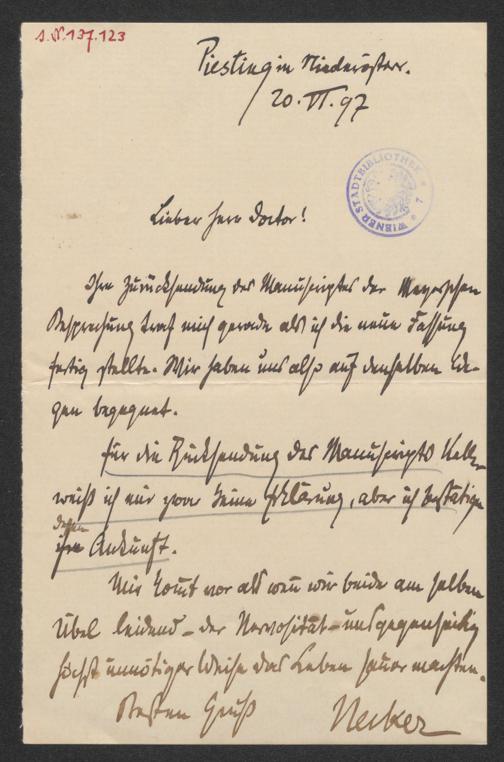 J.N. 137.123
Piesting in Niederösterr.
20. VI. 97
WIENER STADTBIBLIOTHEK * 7 *
Lieber Herr Doctor!
Ihre Zurücksendung des Manuscriptes der Meyerschen
Besprechung traf mich gerade als ich die neue Fassung
fertig stellte. Wir haben uns also auf denselben We-
gen begegnet.
Für die Rücksendung des Manuscripts
weiß ich mir zwar keine Erklärung, aber ich bestätige
deßen
ihre Ankunft.
Mir kom̅t vor als wen̅ wir beide am selben
Übel leidend – der Nervosität – uns gegenseitig
höchst unnötiger Weise das Leben sauer machten.
Besten Gruß Necker